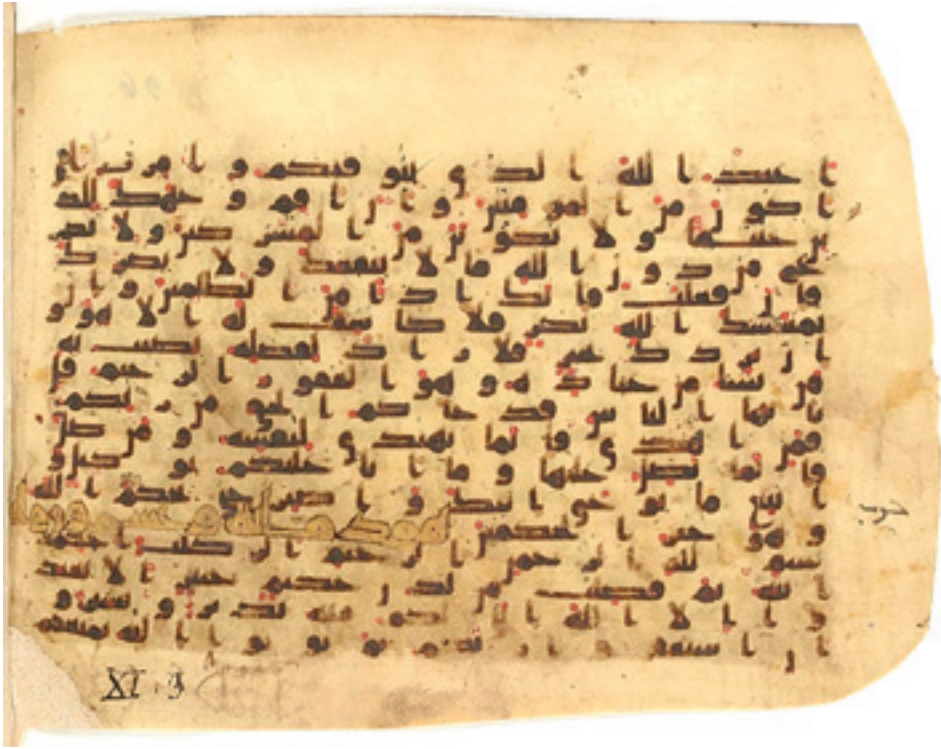 اعبد الله الذي يتوفيكم وامرت ان
اكون من المومنين وان اقم وجهك للد
ين حنيفا ولا تكونن من المشركين ولا تد
ع من دون الله ما لا ينفعك ولا يضرك
فان فعلت فانك اذا من الظلمين وان
يمسسك الله بضر فلا كاشف له الا هو و
ان يردك بخير فلا راد لفضله يصيب به
من يشا من عباده وهو الغفور الرحيم قل
يايها الناس قد جاكم الحق من ربكم
فمن اهتدى فانما يهتدي لنفسه ومن ضل
فانما يضل عليها وما انا عليكم بوكيل و
اتبع ما يوحى اليك واصبر حتى يحكم الله
وهو خير الحكمين
هود
بسم الله الرحمن الرحيم الر كتب احكمت
ايته ثم فصلت من لدن حكيم خبير الا تعبد
وا الا الله انني لكم منه نذير وبشير و
ان استغفروا ربكم ثم توبوا اليه يمتعكم
XI. 9